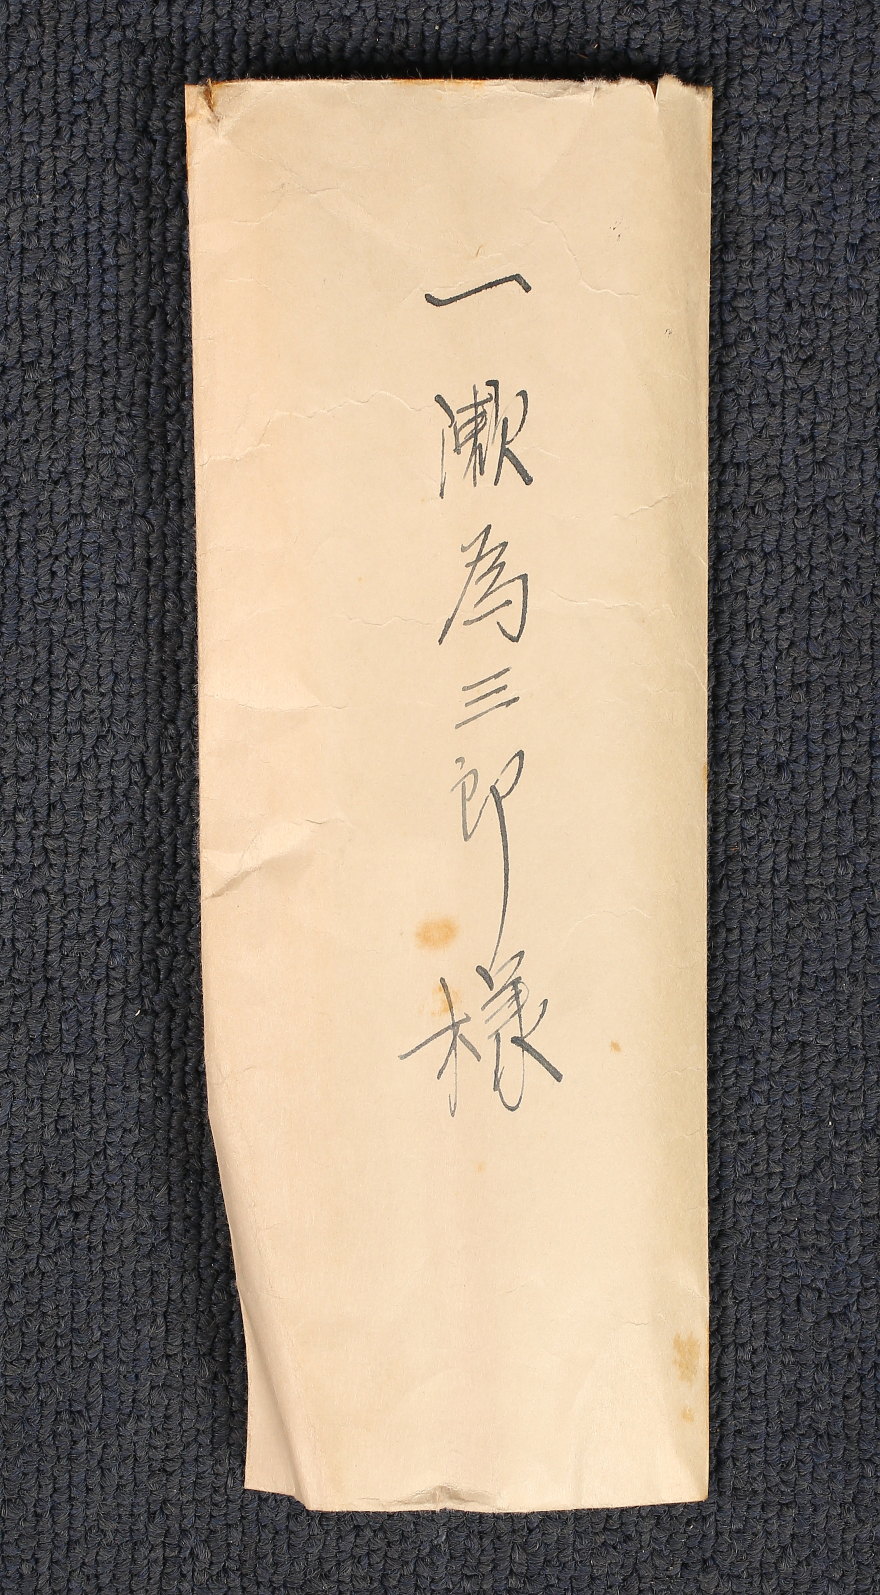 一瀬為三郎様